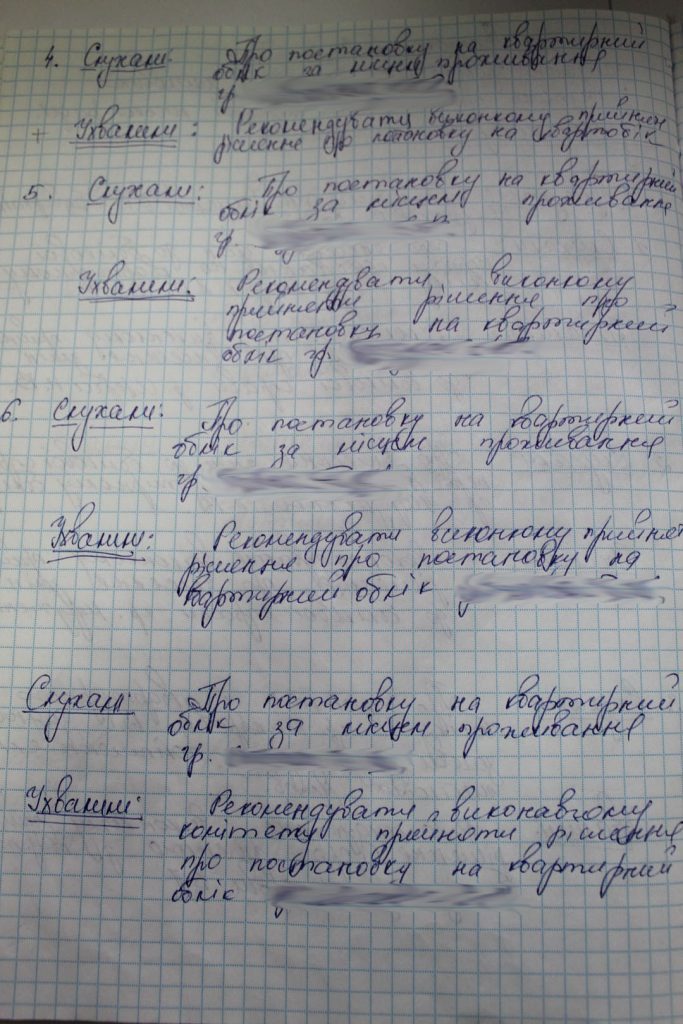 4. Слухали: Про постановку на квартирний
облік за місцем проживання
гр.
+ Ухвалили: Рекомендувати виконкому прийняти
рішення про постановку на квартоблік
5. Слухали: Про постановку на квартирний
облік за місцем проживання
гр.
Ухвалили: Рекомендувати виконкому
прийняти рішення про
постановку на квартирний
облік гр.
6. Слухали: Про постановку на квартирний
облік за місцем проживання
гр.
Ухвалили: Рекомендувати виконкому прийняти
рішення про постановку на
квартирний облік
Слухали: Про постановку на квартирний
облік за місцем проживання
гр.
Ухвалили: Рекомендувати виконавчому
комітету прийняти рішення
про постановку на квартирний
облік